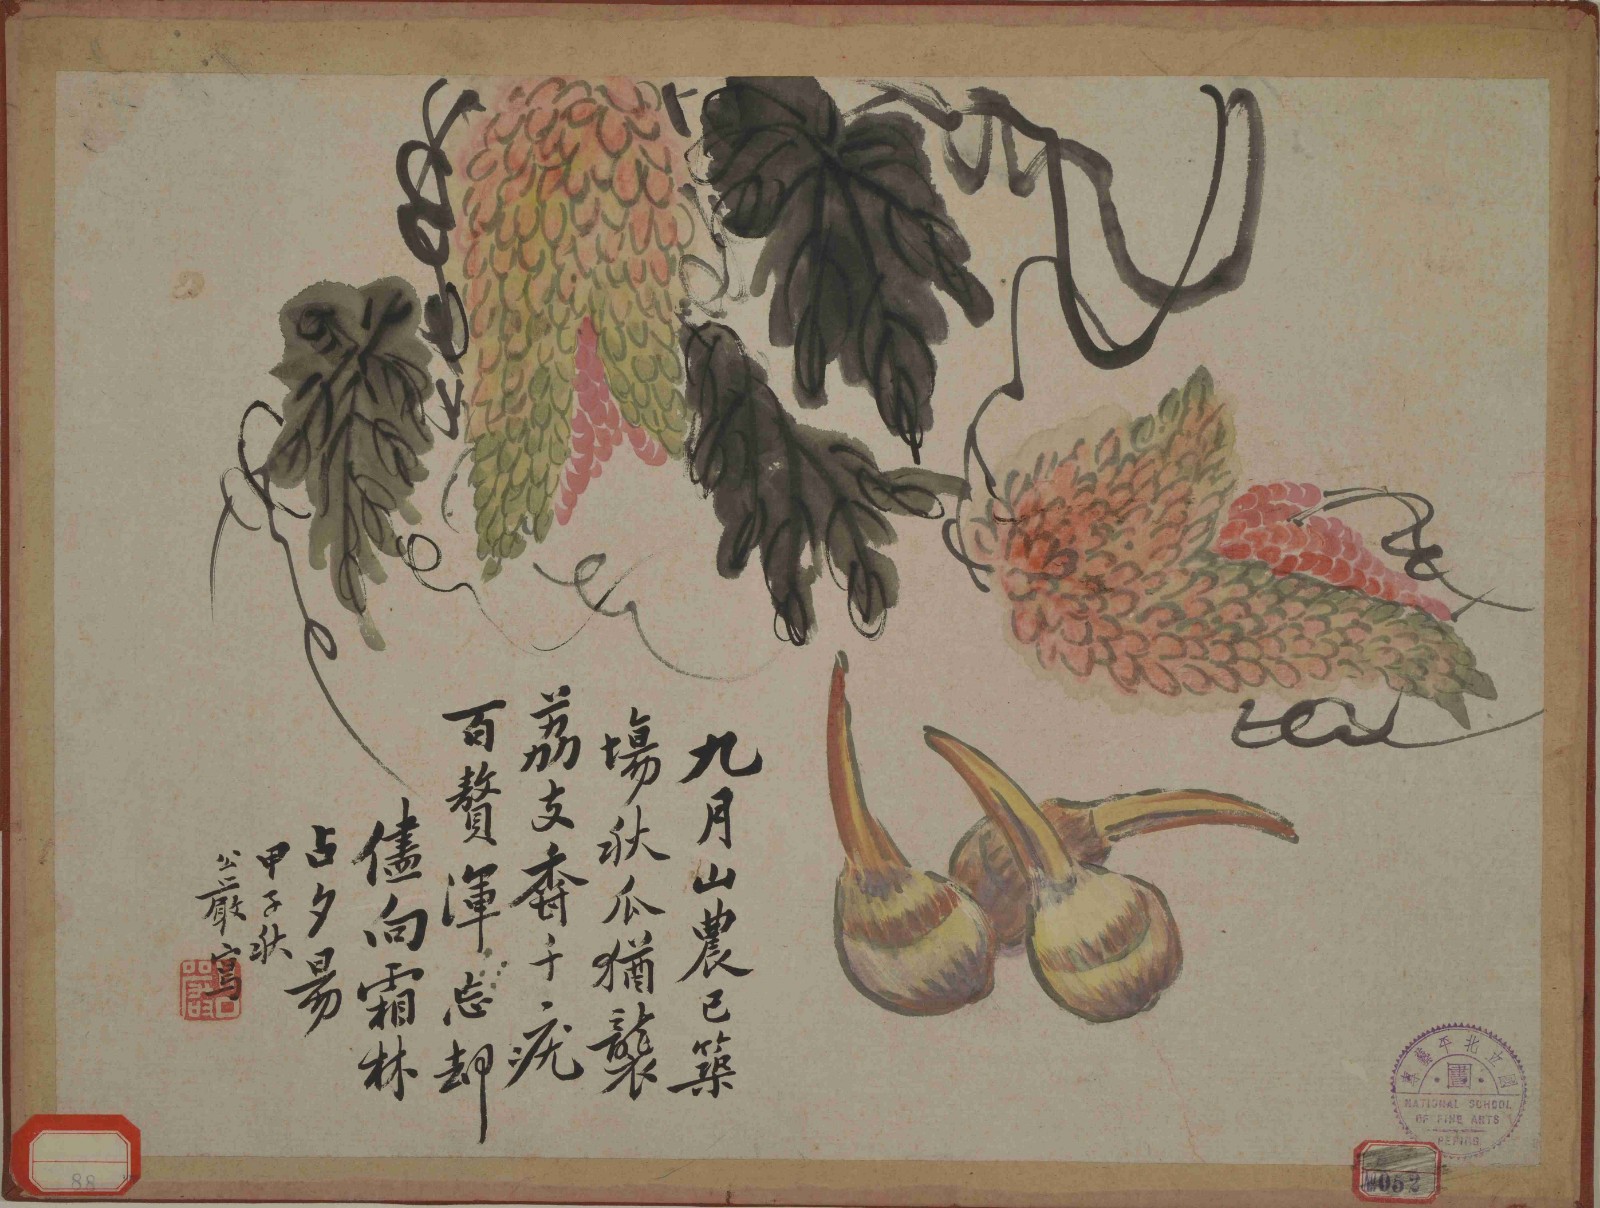 九月山農已築
場秋瓜猶襲
荔支香千疣
百贅渾忘却
儘向霜林
占夕昜
甲子秋
公巖寫
國立北平藝專
圖書
NATIONAL SCHOOL
OF FINE ARTS
PEPING
88
052